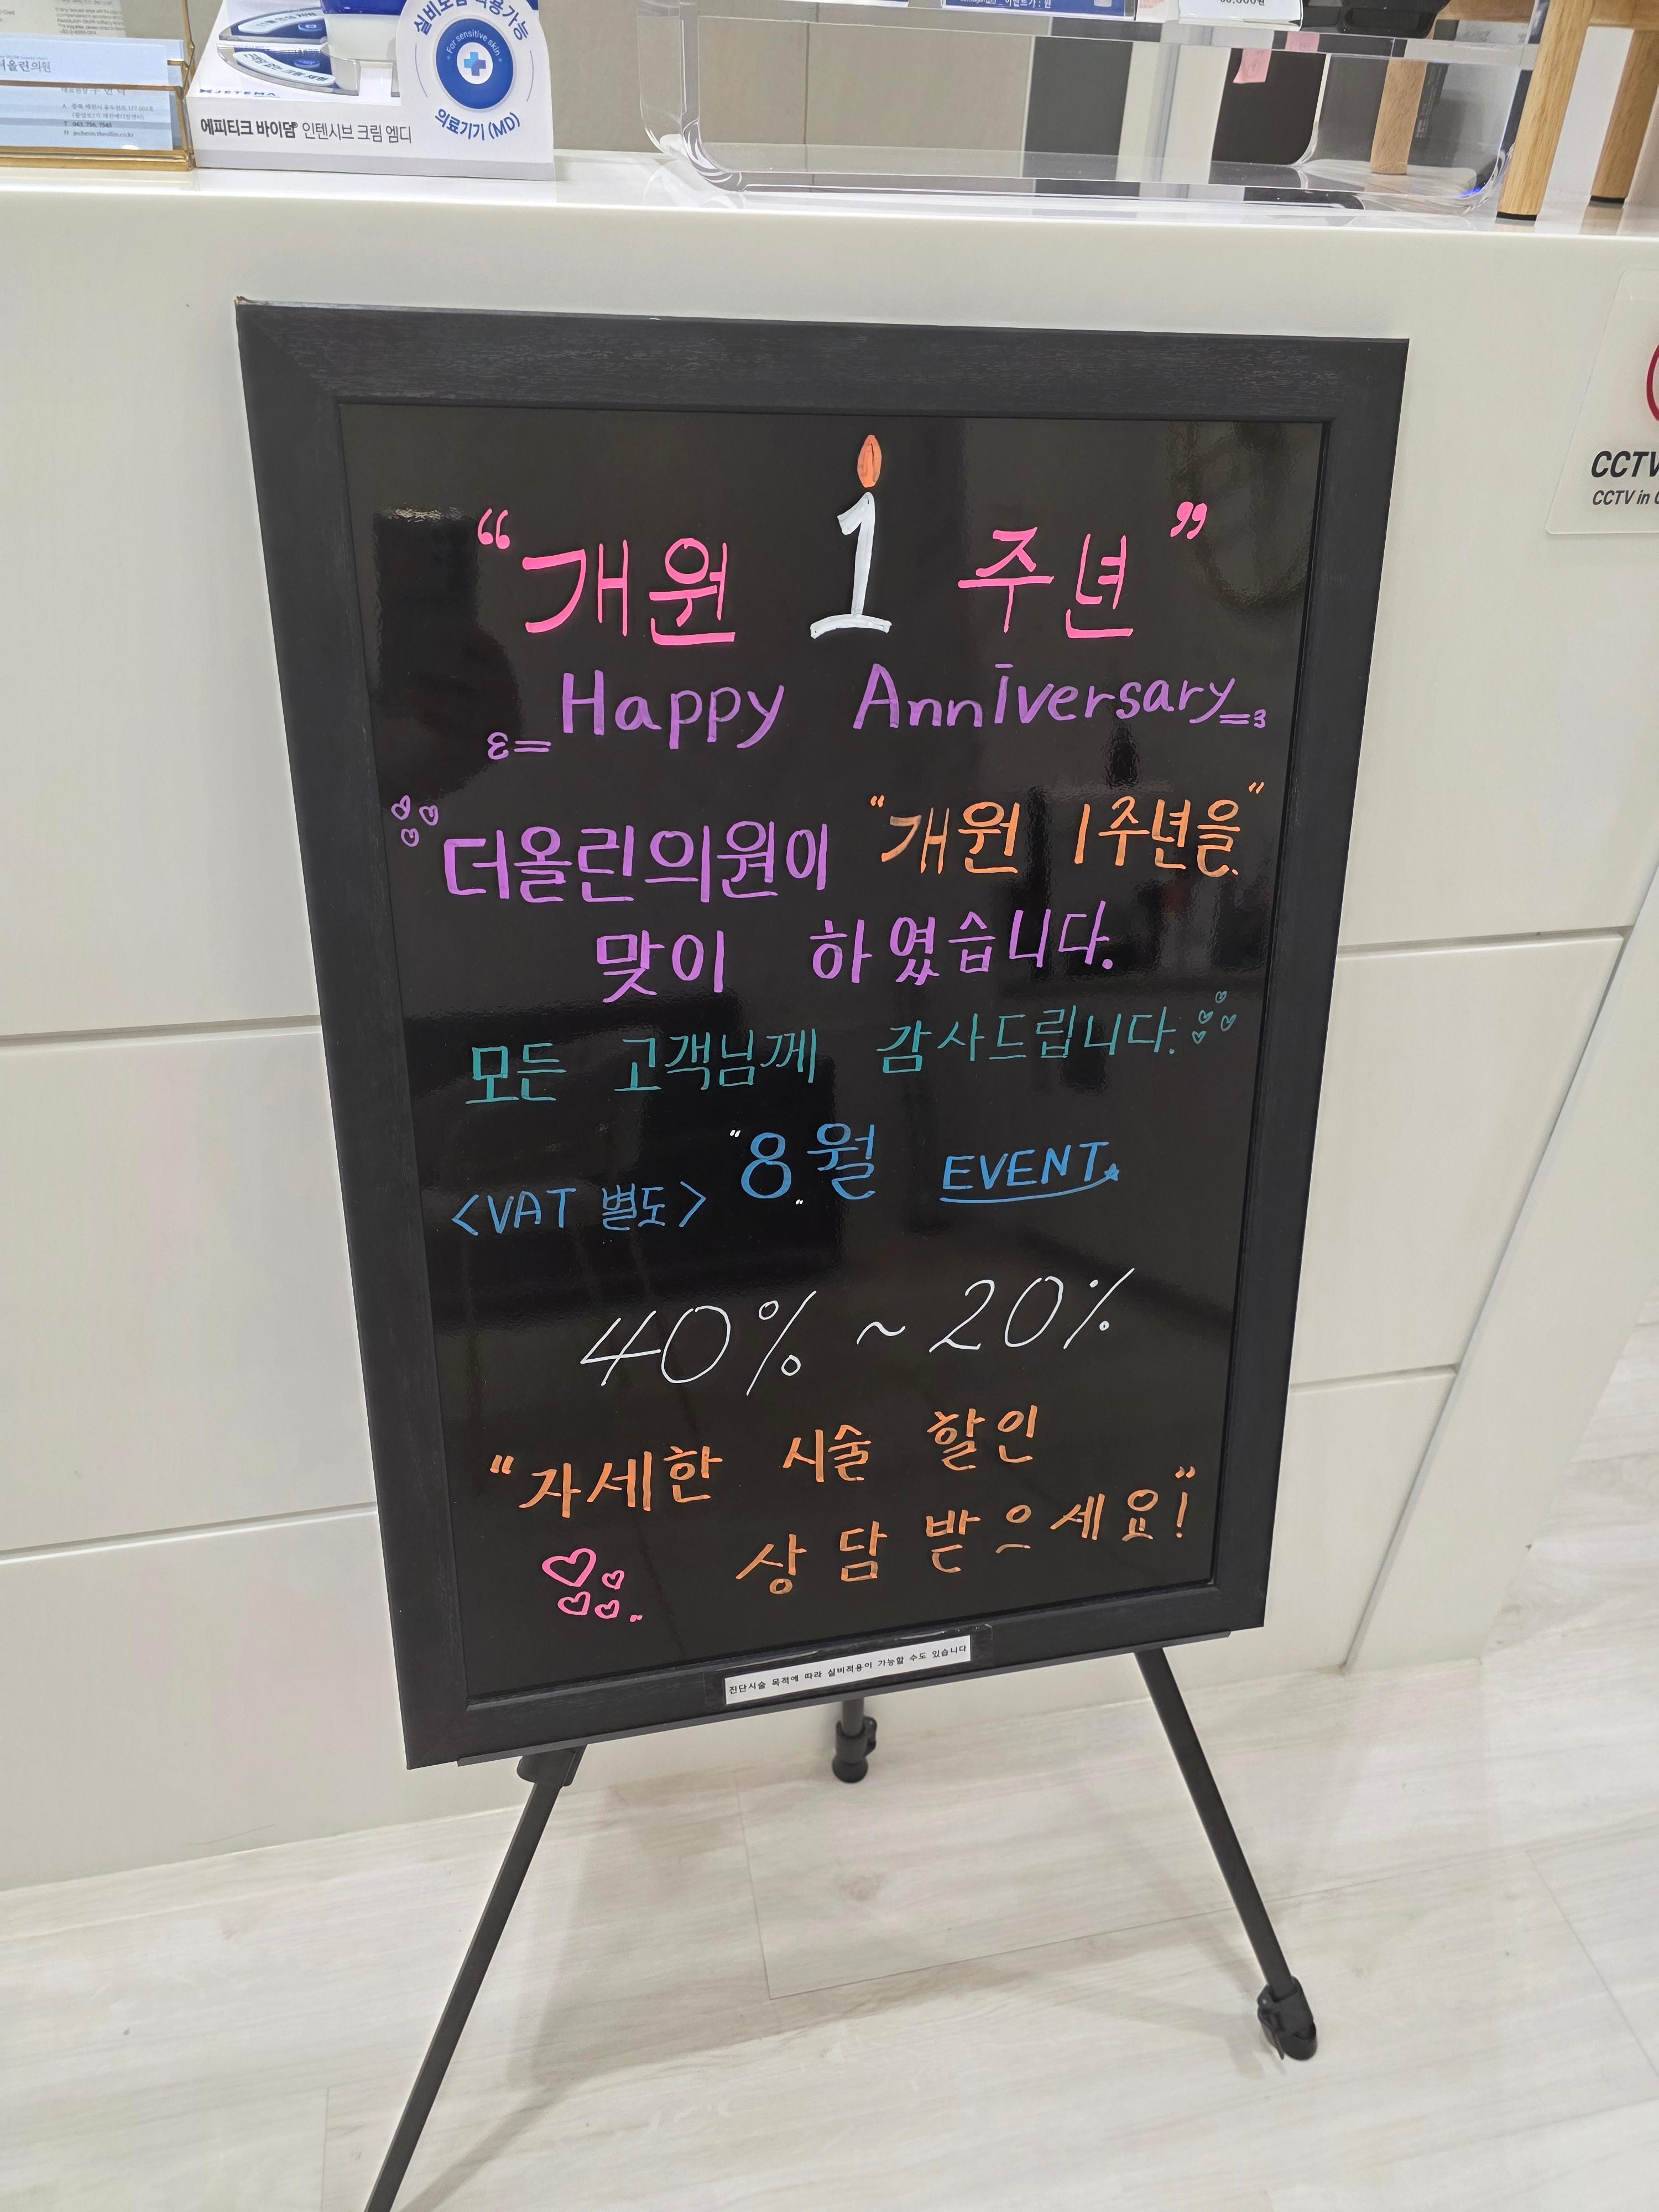 더올린의원
T 043. 756. 7540
실비보험 적용가능
For sensitive skin
JETEMA
에피티크 바이덤 인텐시브 크림 엠디
의료기기 (MD)
CCTV
CCTV in
“개원 1 주년”
Happy Anniversary
더올린의원이 "개원 1주년을"
맞이 하였습니다.
모든 고객님께 감사드립니다.
<VAT 별도> "8월 EVENT
40% ~ 20%
"자세한 시술 할인
상담 받으세요!"
진단시술 목적에 따라 실비적용이 가능할 수도 있습니다